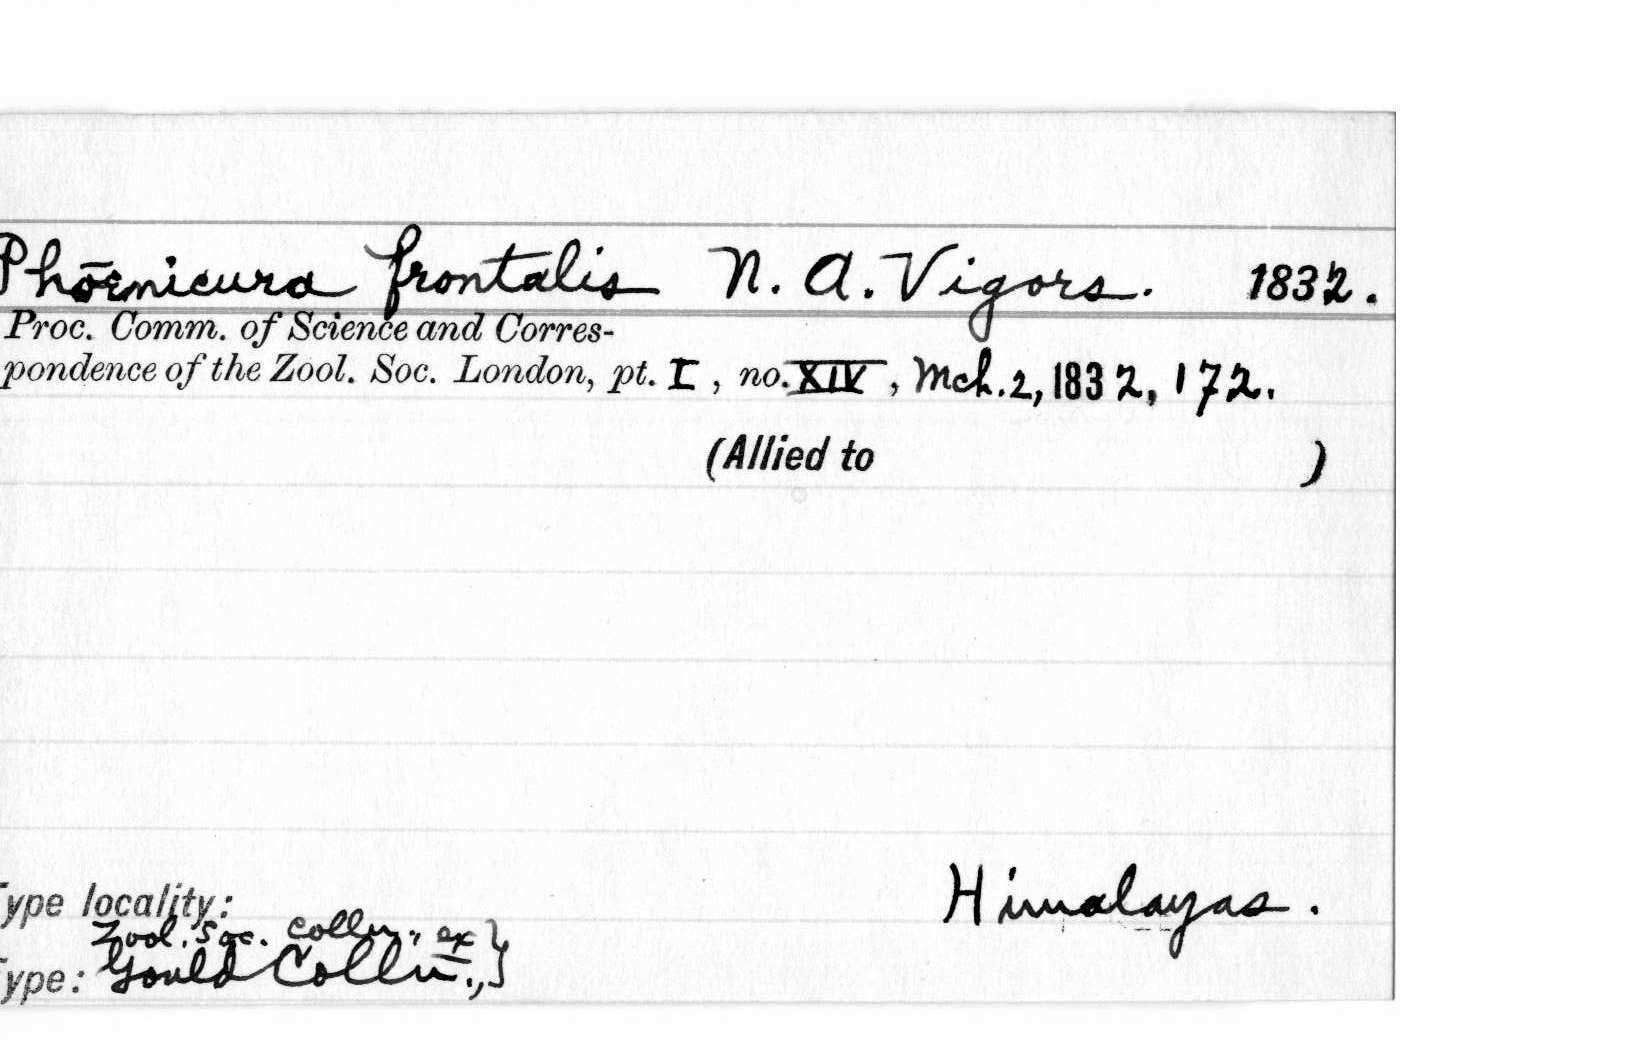 Phoenicura frontalis N. A. Vigors. 1832.
Proc. Comm. of Science and Corres-
pondence of the Zool. Soc. London, pt. I, no. XIV, Mch. 2, 1832, 172.
(Allied to )
Type locality: Himalayas.
Zool. Soc. Colln., ex }
Type: Gould Colln., }